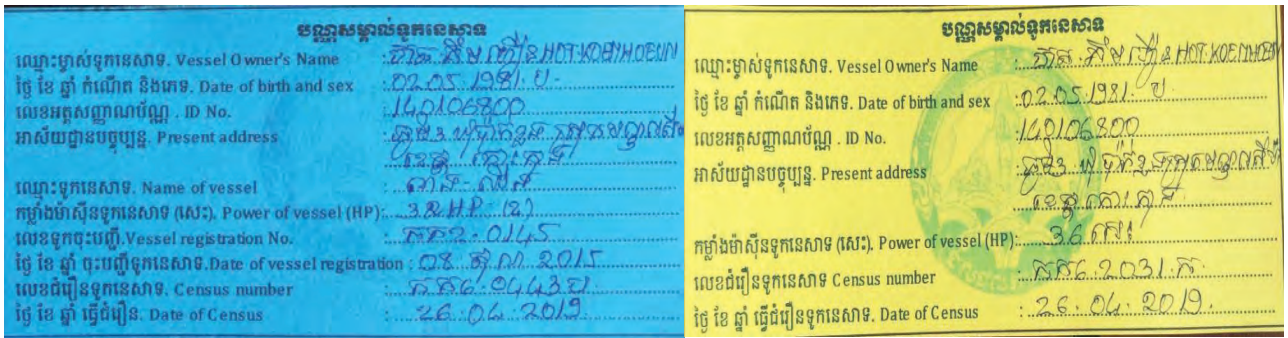 បណ្ណសម្គាល់ទូកនេសាទ
ឈ្មោះម្ចាស់ទូកនេសាទ. Vessel Owner's Name : HOT KOEMHOEUN
ថ្ងៃ ខែ ឆ្នាំ កំណើត និងភេទ. Date of birth and sex : 02.05.1981. ប
លេខអត្តសញ្ញាណប័ណ្ណ . ID No. : 140106800
អាស័យដ្ឋានបច្ចុប្បន្ន. Present address : ភូមិ3
ខេត្ត កោះកុង
ឈ្មោះទូកនេសាទ. Name of vessel :
កម្លាំងម៉ាស៊ីនទូកនេសាទ (សេះ). Power of vessel (HP): 32HP (2)
លេខទូកចុះបញ្ជី.Vessel registration No. : កក2.0145
ថ្ងៃ ខែ ឆ្នាំ ចុះបញ្ជីទូកនេសាទ.Date of vessel registration : 08 តុលា 2015
លេខជំរឿនទូកនេសាទ. Census number : កក6.0443ប
ថ្ងៃ ខែ ឆ្នាំ ធ្វើជំរឿន. Date of Census : 26.04.2019
បណ្ណសម្គាល់ទូកនេសាទ
ឈ្មោះម្ចាស់ទូកនេសាទ. Vessel Owner's Name : HOT KOEMHOEUN
ថ្ងៃ ខែ ឆ្នាំ កំណើត និងភេទ. Date of birth and sex : 02.05.1981. ប
លេខអត្តសញ្ញាណប័ណ្ណ . ID No. : 140106800
អាស័យដ្ឋានបច្ចុប្បន្ន. Present address : ភូមិ3
ខេត្ត កោះកុង
កម្លាំងម៉ាស៊ីនទូកនេសាទ (សេះ). Power of vessel (HP): 36 សេះ
លេខជំរឿនទូកនេសាទ. Census number : កក6.2031.ក
ថ្ងៃ ខែ ឆ្នាំ ធ្វើជំរឿនទូកនេសាទ. Date of Census : 26.04.2019.